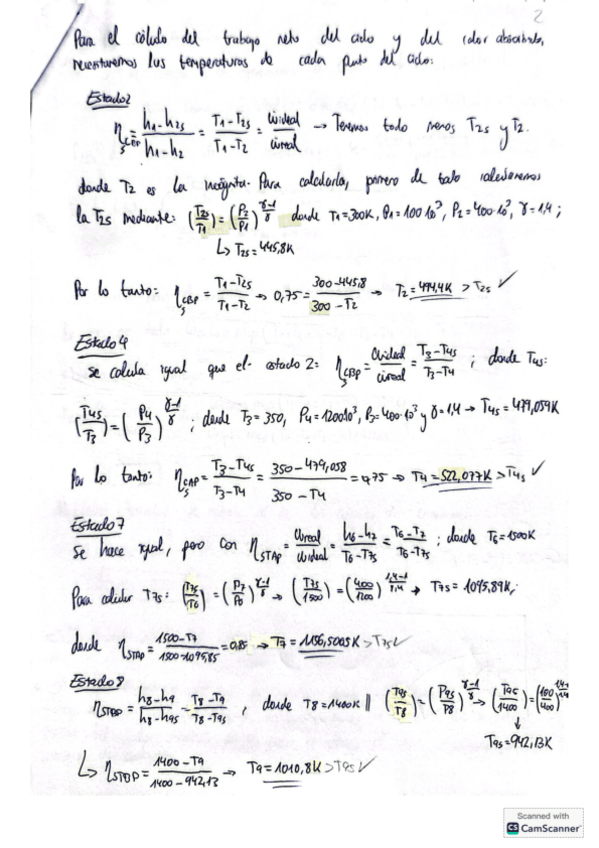 2
Para el cálculo del trabajo neto del ciclo y del calor absorbido,
necesitaremos las temperaturas de cada punto del ciclo:
Estado 2
η_SCBP = (h1-h2s)/(h1-h2) = (T1-T2s)/(T1-T2) = ẇideal/ẇreal → Tenemos todo menos T2s y T2.
donde T2 es la incógnita. Para calcularla, primero de todo calcularemos
la T2s mediante: (T2s/T1) = (P2/P1)^((γ-1)/γ) donde T1=300K, P1=100·10³, P2=400·10³, γ=1,4;
↳ T2s=445,8K
Por lo tanto: η_SCBP = (T1-T2s)/(T1-T2) → 0,75 = (300-445,8)/(300-T2) → T2=494,4K > T2s ✓
Estado 4
se calcula igual que el estado 2: η_SCBP = ẇideal/ẇreal = (T3-T4s)/(T3-T4); donde T4s:
(T4s/T3) = (P4/P3)^((γ-1)/γ); donde T3=350, P4=1200·10³, P3=400·10³ y γ=1,4 → T4s=479,059K
Por lo tanto: η_SCAP = (T3-T4s)/(T3-T4) = (350-479,058)/(350-T4) = 0,75 → T4=522,077K > T4s ✓
Estado 7
Se hace igual, pero con η_STAP = ẇreal/ẇideal = (h6-h7)/(T6-T7s) = (T6-T7)/(T6-T7s); donde T6=1500K
Para calcular T7s: (T7s/T6) = (P7/P6)^((γ-1)/γ) → (T7s/1500) = (400/1200)^((1,4-1)/1,4) → T7s=1095,89K;
donde η_STAP = (1500-T7)/(1500-1095,85) = 0,85 → T7=1156,5005K > T7s ✓
Estado 8
η_STBP = (h8-h9)/(h8-h9s) = (T8-T9)/(T8-T9s), donde T8=1400K || (T9s/T8) = (P9s/P8)^((γ-1)/γ) → (T9s/1400) = (100/400)^((1,4-1)/1,4)
↓
T9s=942,13K
↳ η_STBP = (1400-T9)/(1400-942,13) → T9=1010,8K > T9s ✓
Scanned with
CS CamScanner